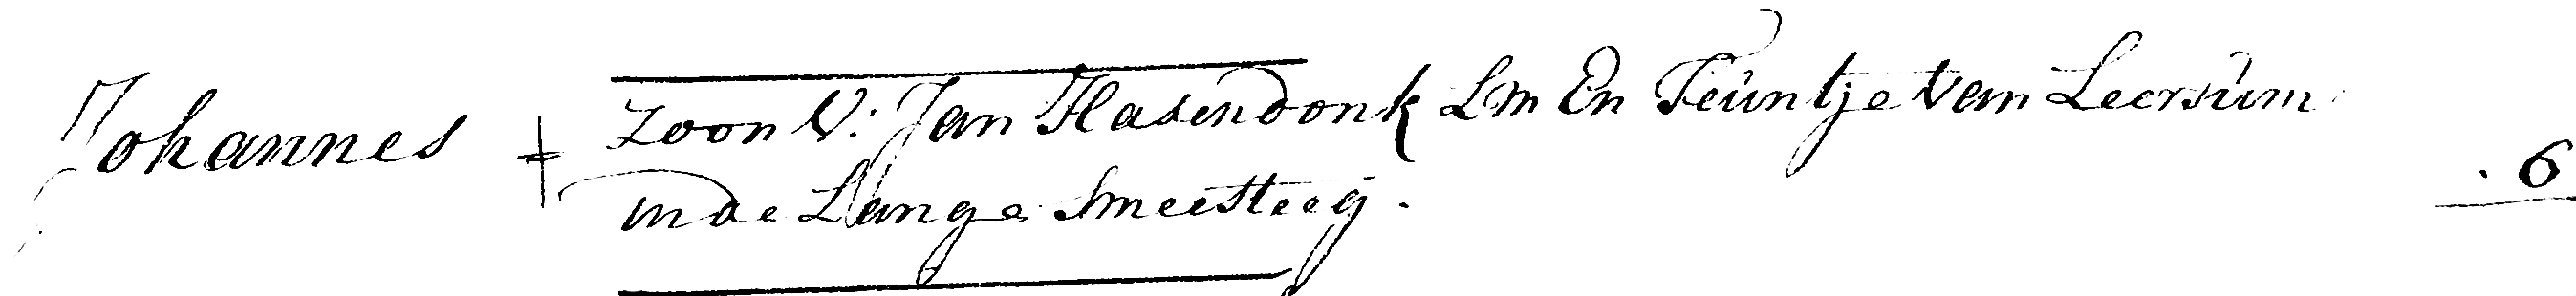 Johannes + zoon V: Jan Hasendonk Lm En Teuntje van Leersum
in de Lange Smeesteeg. . 6